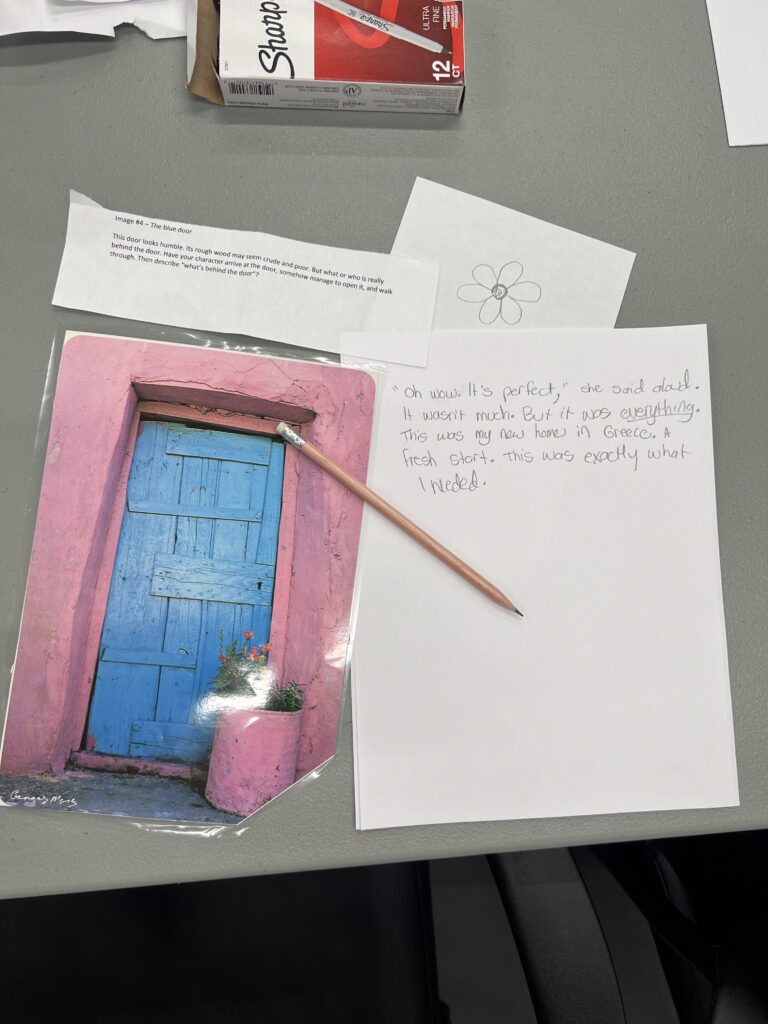 Sharpie
ULTRA
FINE
12
CT
Image #4 – The blue door
This door looks humble. Its rough wood may seem crude and poor. But what or who is really
behind the door. Have your character arrive at the door, somehow manage to open it, and walk
through. Then describe "what's behind the door"?
"Oh wow. It's perfect," she said aloud.
It wasn't much. But it was everything.
This was my new home in Greece. A
fresh start. This was exactly what
I needed.